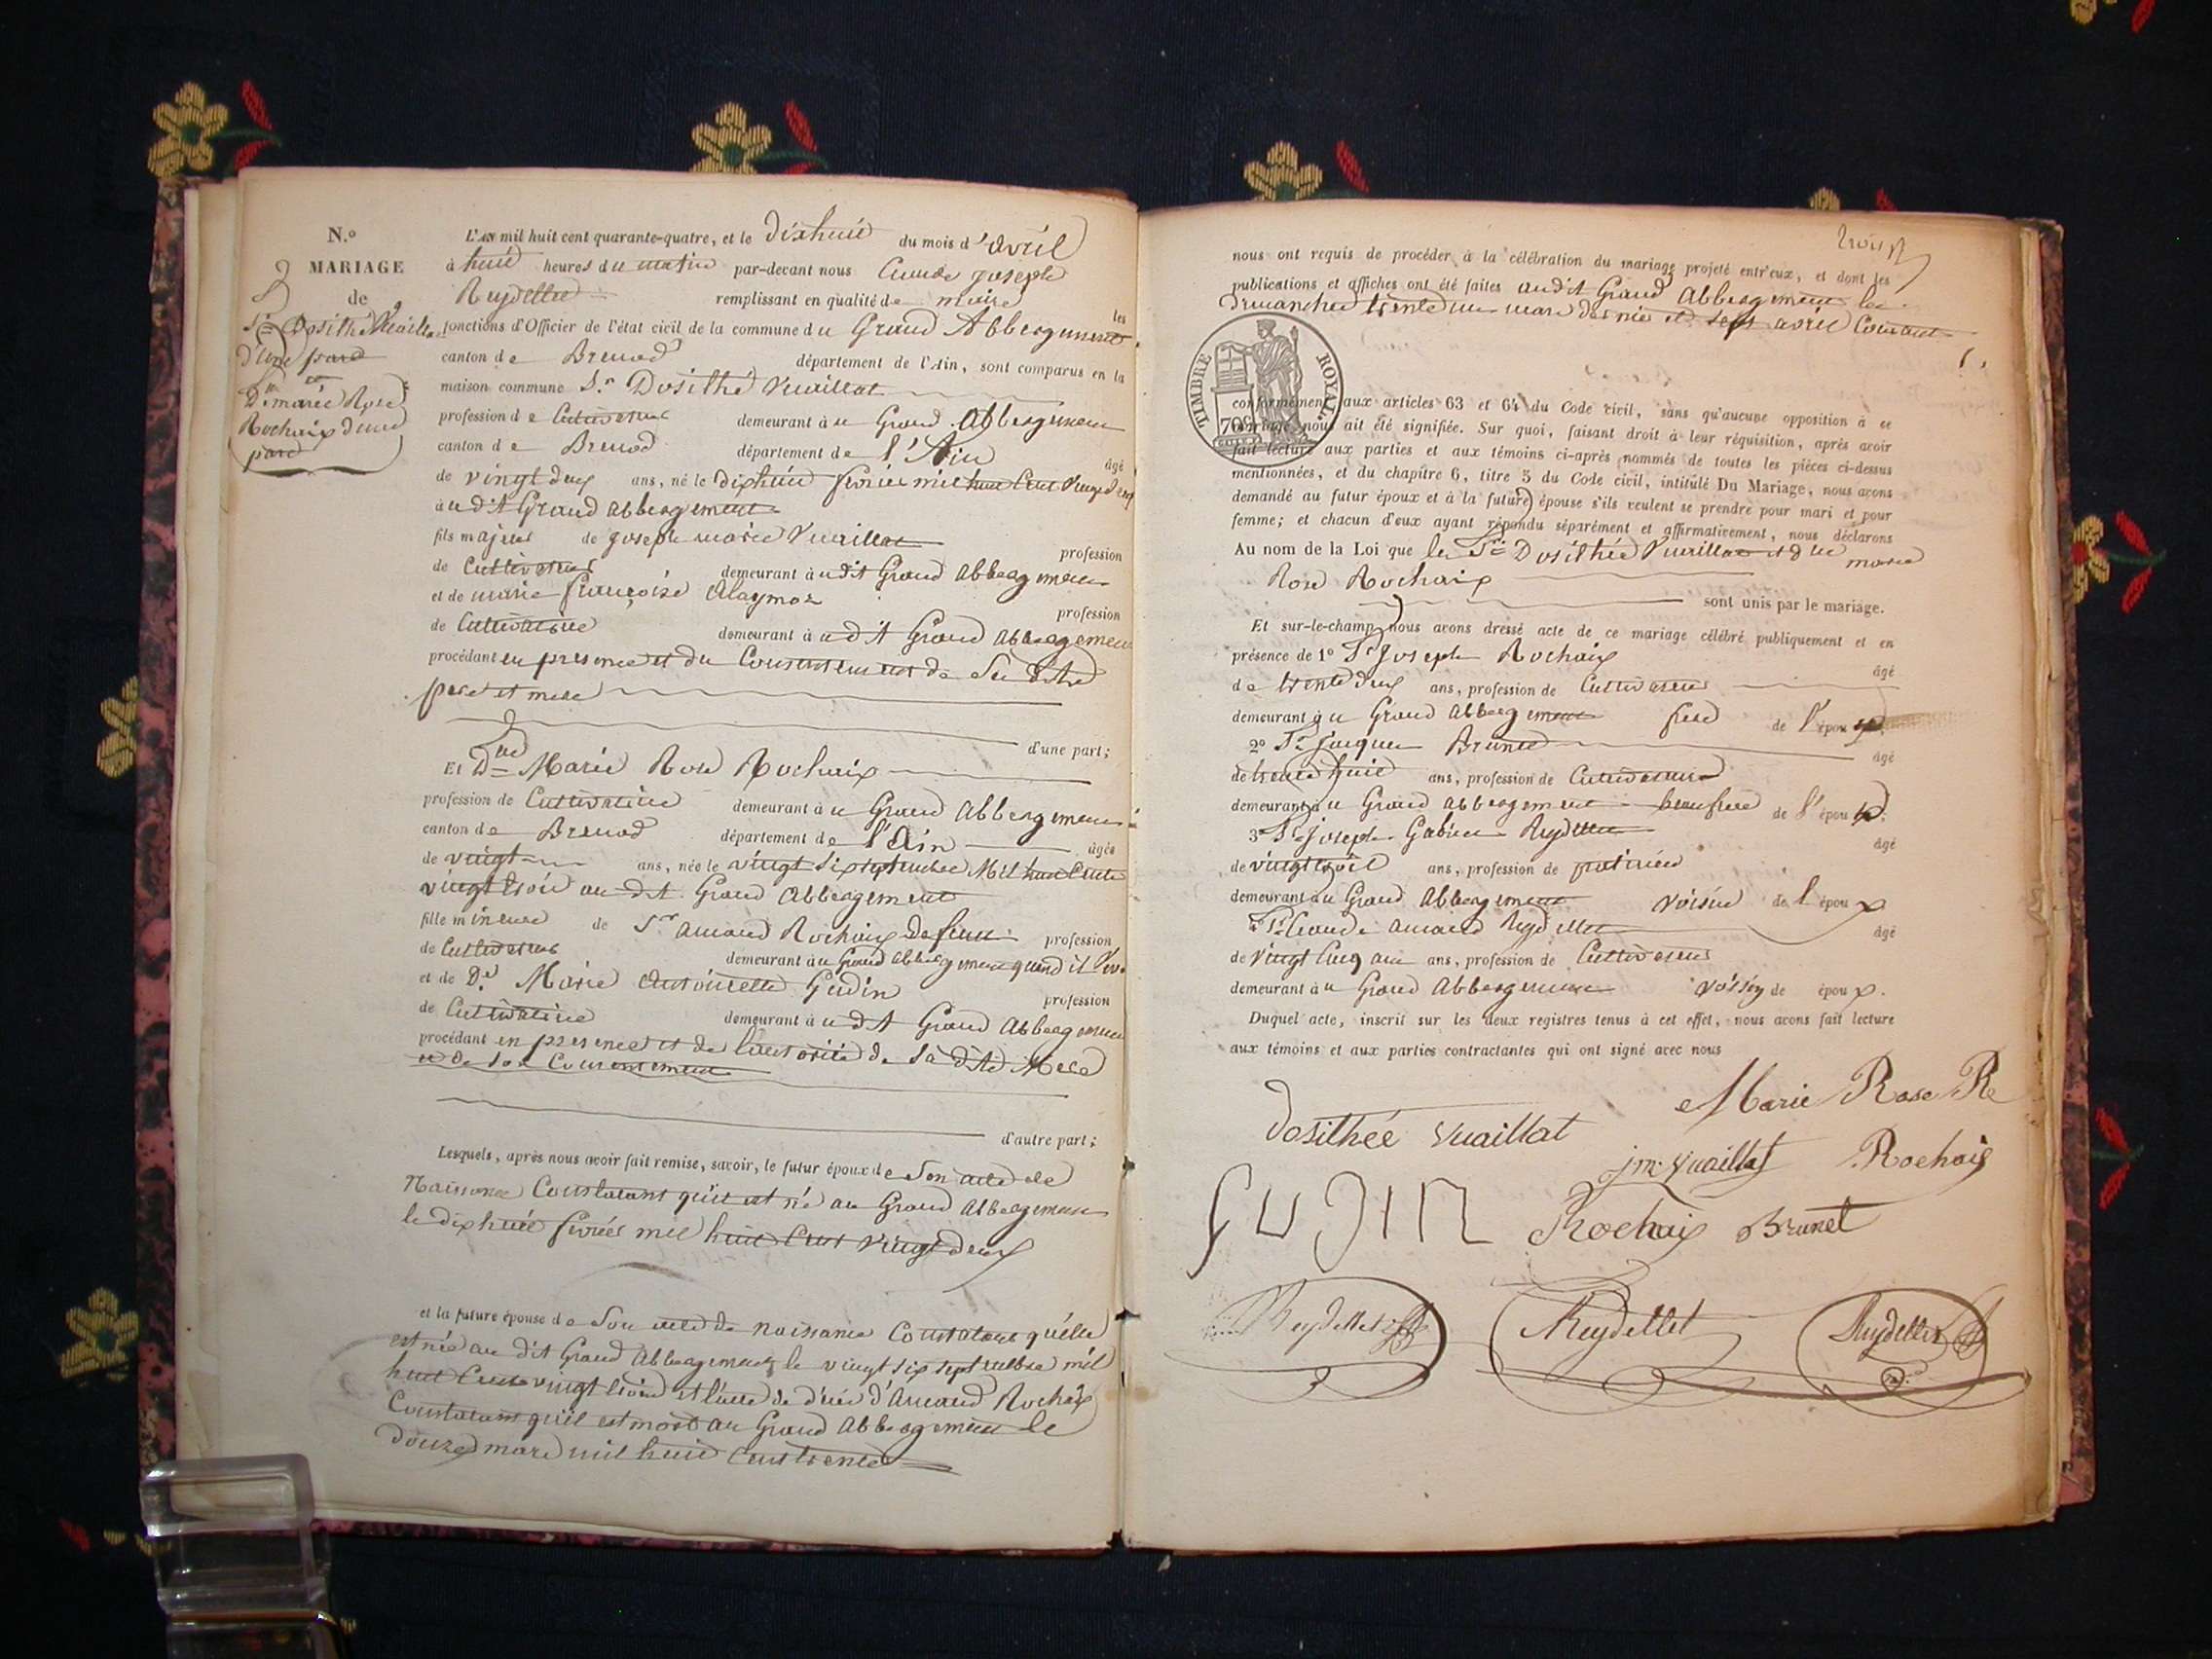 N.º
MARIAGE
de
Sr Dosithé Vuaillat
d'une part
et
Dlle marie Rose
Rochaix d'autre
part
L'AN mil huit cent quarante-quatre, et le dixhuit du mois d'avril
à huit heures du matin par-devant nous Claude Joseph
Reydellet remplissant en qualité de maire les
fonctions d'Officier de l'état civil de la commune du Grand Abbergement
canton de Brenod département de l'Ain, sont comparus en la
maison commune Sr Dosithé Vuaillat
profession de Cultivateur demeurant à u Grand Abbergement
canton de Brenod département de l'Ain âgé
de vingt deux ans, né le dixhuit février mil huit Cent vingt deux
à u dit Grand abbergement
fils majeur de Joseph marie Vuaillat profession
de Cultivateur demeurant à udit Grand abbergement
et de marie françoise
profession
de Cultivatrice demeurant à udit Grand abbergement
procédant en presence et du Consentement de Ses dits
pere et mere
d'une part;
Et Dlle Marie Rose Rochaix
profession de Cultivatrice demeurant à u Grand Abbergement
canton de Brenod département de l'Ain âgée
de vingt ans, née le vingt six septembre Mil huit Cent
vingt trois au dit Grand Abbergement
fille mineure de Sr amand Rochaix defunt profession
de Cultivateur demeurant à u Grand abbergement quand il
et de De Marie antoinette Gudin profession
de Cultivatrice demeurant à u dit Grand Abbergement
procédant en presence et de l'autorité de Sa dite Mere
et de son Consentement
d'autre part;
Lesquels, après nous avoir fait remise, savoir, le futur époux de Son acte de
Naissance Constatant qu'il est né au Grand Abbergement
le dixhuit février mil huit Cent vingt deux
et la future épouse de Son acte de naissance Constatant qu'elle
est née au dit Grand Abbergement le vingt six septembre mil
huit Cent vingt trois et l'acte de décès d'amand Rochaix
Constatant qu'il est mort au Grand Abbergement le
douze mars mil huit Cent trente
trois
nous ont requis de procéder à la célébration du mariage projeté entr'eux, et dont les
publications et affiches ont été faites audit Grand Abbergement les
dimanches trente un mars dernier et sept avril Courant
TIMBRE ROYAL
70
conformément aux articles 63 et 64 du Code civil, sans qu'aucune opposition à ce
mariage nous ait été signifiée. Sur quoi, faisant droit à leur réquisition, après avoir
fait lecture aux parties et aux témoins ci-après nommés de toutes les pièces ci-dessus
mentionnées, et du chapitre 6, titre 5 du Code civil, intitulé Du Mariage, nous avons
demandé au futur époux et à la future épouse s'ils veulent se prendre pour mari et pour
femme; et chacun d'eux ayant répondu séparément et affirmativement, nous déclarons
Au nom de la Loi que le Sr Dosithée Vuaillat et Dlle marie
Rose Rochaix
sont unis par le mariage.
Et sur-le-champ nous avons dressé acte de ce mariage célébré publiquement et en
présence de 1º Sr Joseph Rochaix âgé
de trente deux ans, profession de Cultivateur
demeurant à u Grand abbergement frere de l'épouse
2º Sr Jacques Brunet âgé
de trente huit ans, profession de Cultivateur
demeurant à u Grand abbergement beaufrere de l'épouse
3º Sr Joseph Gabriel Reydellet âgé
de vingt trois ans, profession de
demeurant à u Grand Abbergement voisin de l'époux
Sr Claude amand Reydellet âgé
de vingt Cinq ans ans, profession de Cultivateur
demeurant à u Grand Abbergement voisin de époux.
Duquel acte, inscrit sur les deux registres tenus à cet effet, nous avons fait lecture
aux témoins et aux parties contractantes qui ont signé avec nous
Marie Rose Re
dosithée vuaillat
jm. vuaillat Rochaix
GUDIN Rochaix Brunet
Reydellet Reydellet Reydellet